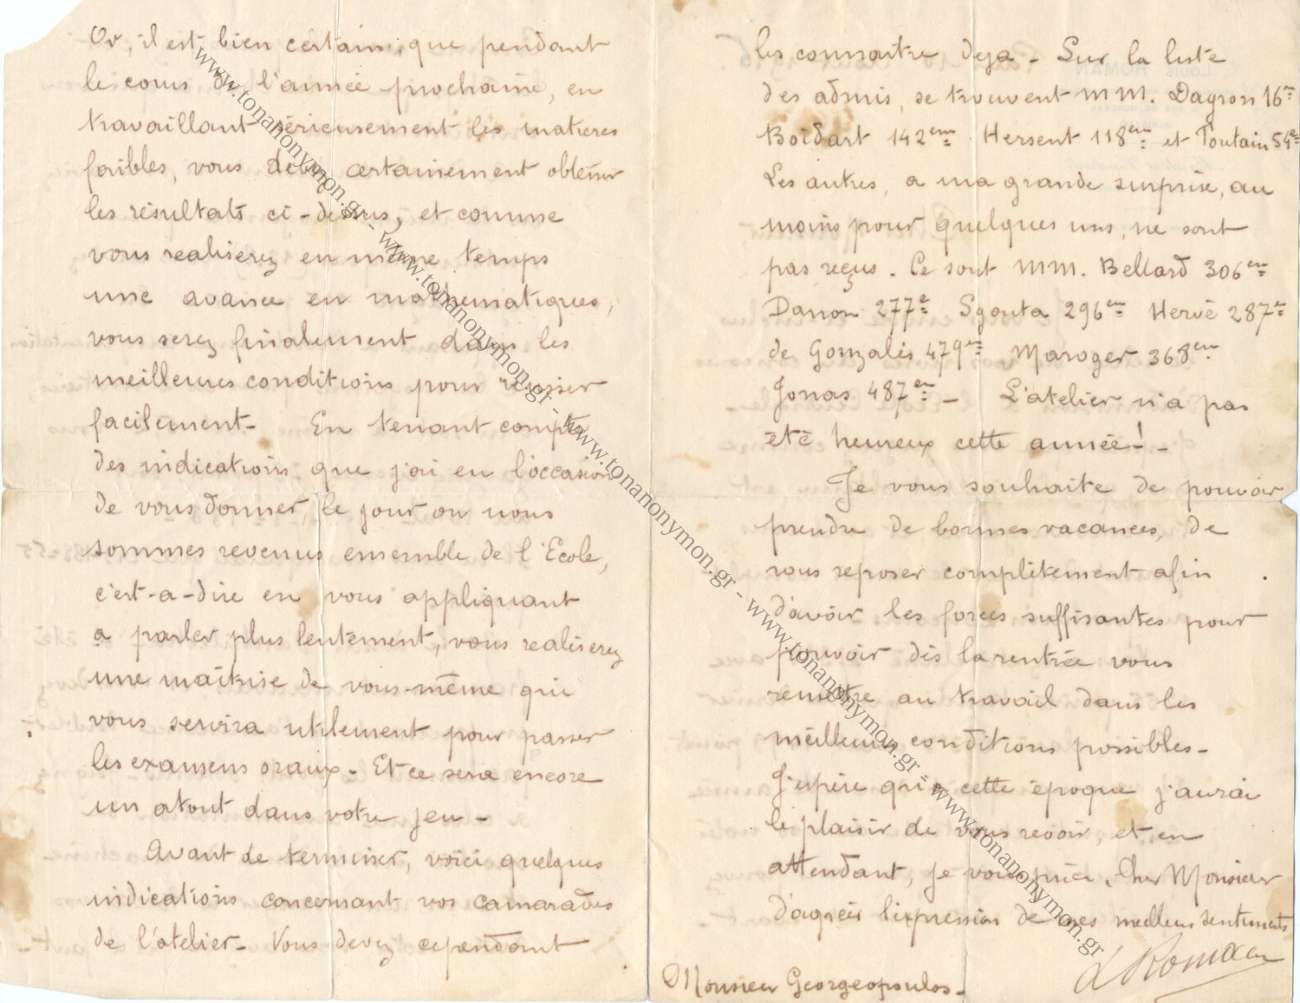 Or, il est bien certain, que pendant
le cours de l'année prochaine, en
travaillant sérieusement les matieres
faibles, vous devez certainement obtenir
les résultats ci-dessus, et comme
vous realiserez en même temps
une avance en mathematiques,
vous serez finalement dans les
meilleures conditions pour réussir
facilement - En tenant compte
des indications que j'ai eu l'occasion
de vous donner, le jour ou nous
sommes revenus ensemble de l'Ecole,
c'est-a-dire en vous appliquant
a parler plus lentement, vous realiserez
une maîtrise de vous-même qui
vous servira utilement pour passer
les examens oraux - Et ce sera encore
un atout dans votre jeu -
Avant de terminer, voici quelques
indications concernant vos camarades
de l'atelier - Vous devez cependant
les connaitre deja - Sur la liste
des admis, se trouvent MM. Dagron 16me
Boidart 142em Hersent 118em et Toutain 54e
Les autres, a ma grande surprise, au
moins pour quelques uns, ne sont
pas reçus. Ce sont MM. Bellard 306em
Danon 277e Sgouta 296em Hervé 287e
de Gonzalès 479me Maroger 368em
Jonas 487em - L'atelier n'a pas
été heureux cette année! -
Je vous souhaite de pouvoir
prendre de bonnes vacances, de
vous reposer complètement afin
d'avoir les forces suffisantes pour
pouvoir dès la rentrée vous
remettre au travail dans les
meilleures conditions possibles -
J'espère qu'a cette époque j'aurai
le plaisir de vous revoir, et, en
attendant, je vous prie, Cher Monsieur
d'agréer l'expression de mes meilleurs sentiments
L Roman
Monsieur Georgeopoulos -
www.tonanonymon.gr - www.tonanonymon.gr - www.tonanonymon.gr - www.tonanonymon.gr - www.tonanonymon.gr